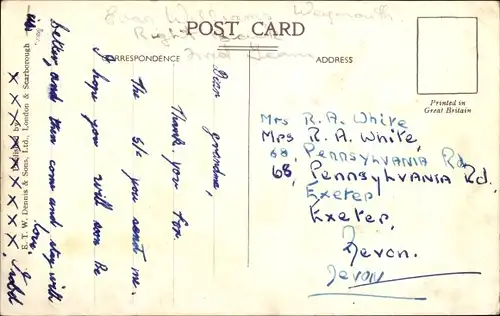 Evan Williams Weymouth.
POST CARD
CORRESPONDENCE
ADDRESS
Printed in
Great Britain
Dear grandma,
Thank you for
the 5/- you sent me.
I hope you will soon be
better, and then come and stay with
us.
love.
x x x x x x x x x
E. T. W. Dennis & Sons, Ltd., London & Scarborough
Mrs R. A. White
Mrs R. A. White,
68, Pennsylvania Rd
68, Pennsylvania Rd.
Exeter
Exeter,
Devon.
Devon